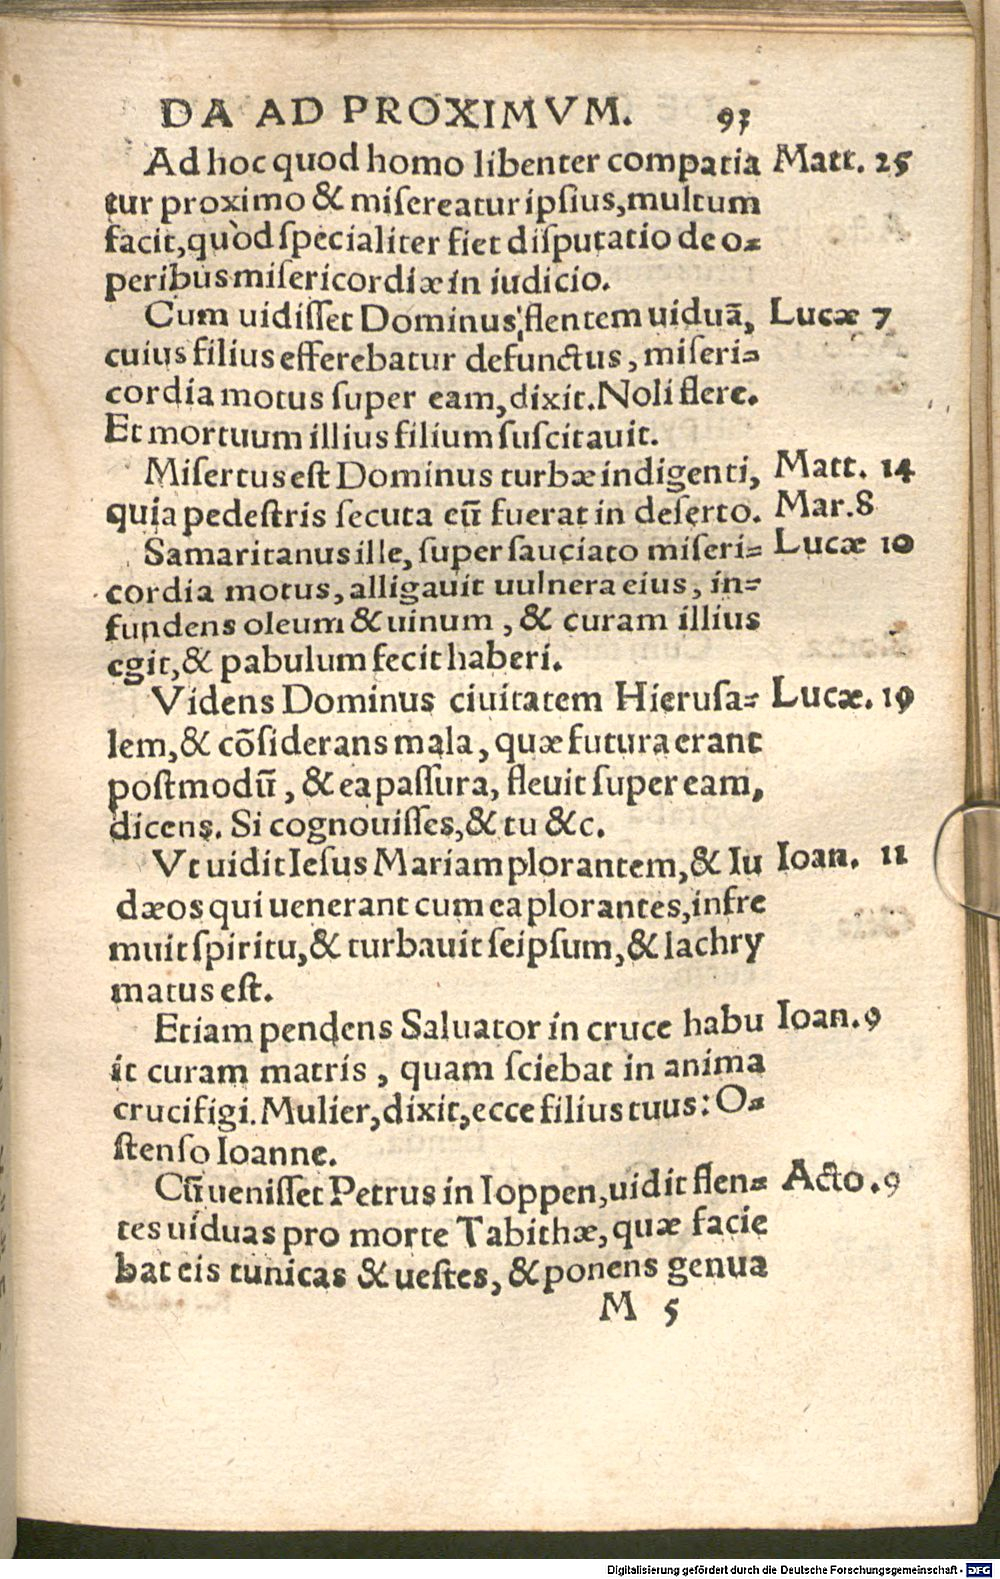 DA AD PROXIMVM. 93
Ad hoc quod homo libenter compatia Matt. 25
tur proximo & miſereatur ipſius, multum
facit, quòd ſpecialiter fiet diſputatio de o⸗
peribus miſericordiæ in iudicio.
Cum uidiſſet Dominus flentem uiduã, Lucæ 7
cuius filius efferebatur defunctus, miſeri⸗
cordia motus ſuper eam, dixit. Noli flere.
Et mortuum illius filium ſuſcitauit.
Miſertus eſt Dominus turbæ indigenti, Matt. 14
quia pedeſtris ſecuta eũ fuerat in deſerto. Mar. 8
Samaritanus ille, ſuper ſauciato miſeri⸗ Lucæ 10
cordia motus, alligauit uulnera eius, in⸗
fundens oleum & uinum, & curam illius
egit, & pabulum fecit haberi.
Videns Dominus ciuitatem Hieruſa⸗ Lucæ. 19
lem, & cõſiderans mala, quæ futura erant
poſtmodũ, & ea paſſura, fleuit ſuper eam,
dicens. Si cognouiſſes, & tu &c.
Vt uidit Ieſus Mariam plorantem, & Iu Ioan. 11
dæos qui uenerant cum ea plorantes, infre
muit ſpiritu, & turbauit ſeipſum, & lachry
matus eſt.
Etiam pendens Saluator in cruce habu Ioan. 9
it curam matris, quam ſciebat in anima
crucifigi. Mulier, dixit, ecce filius tuus: O⸗
ſtenſo Ioanne.
Cũ ueniſſet Petrus in Ioppen, uidit flen⸗ Acto. 9
tes uiduas pro morte Tabithæ, quæ facie
bat eis tunicas & ueſtes, & ponens genua
M 5
Digitalisierung gefördert durch die Deutsche Forschungsgemeinschaft - DFG